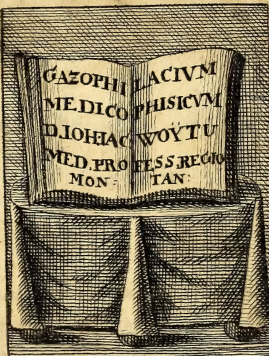 GAZOPHILACIVM
MEDICO PHISICVM
D. IOH: IAC WOŸTU
MED. PROFESS. REGIO
MON: TAN: